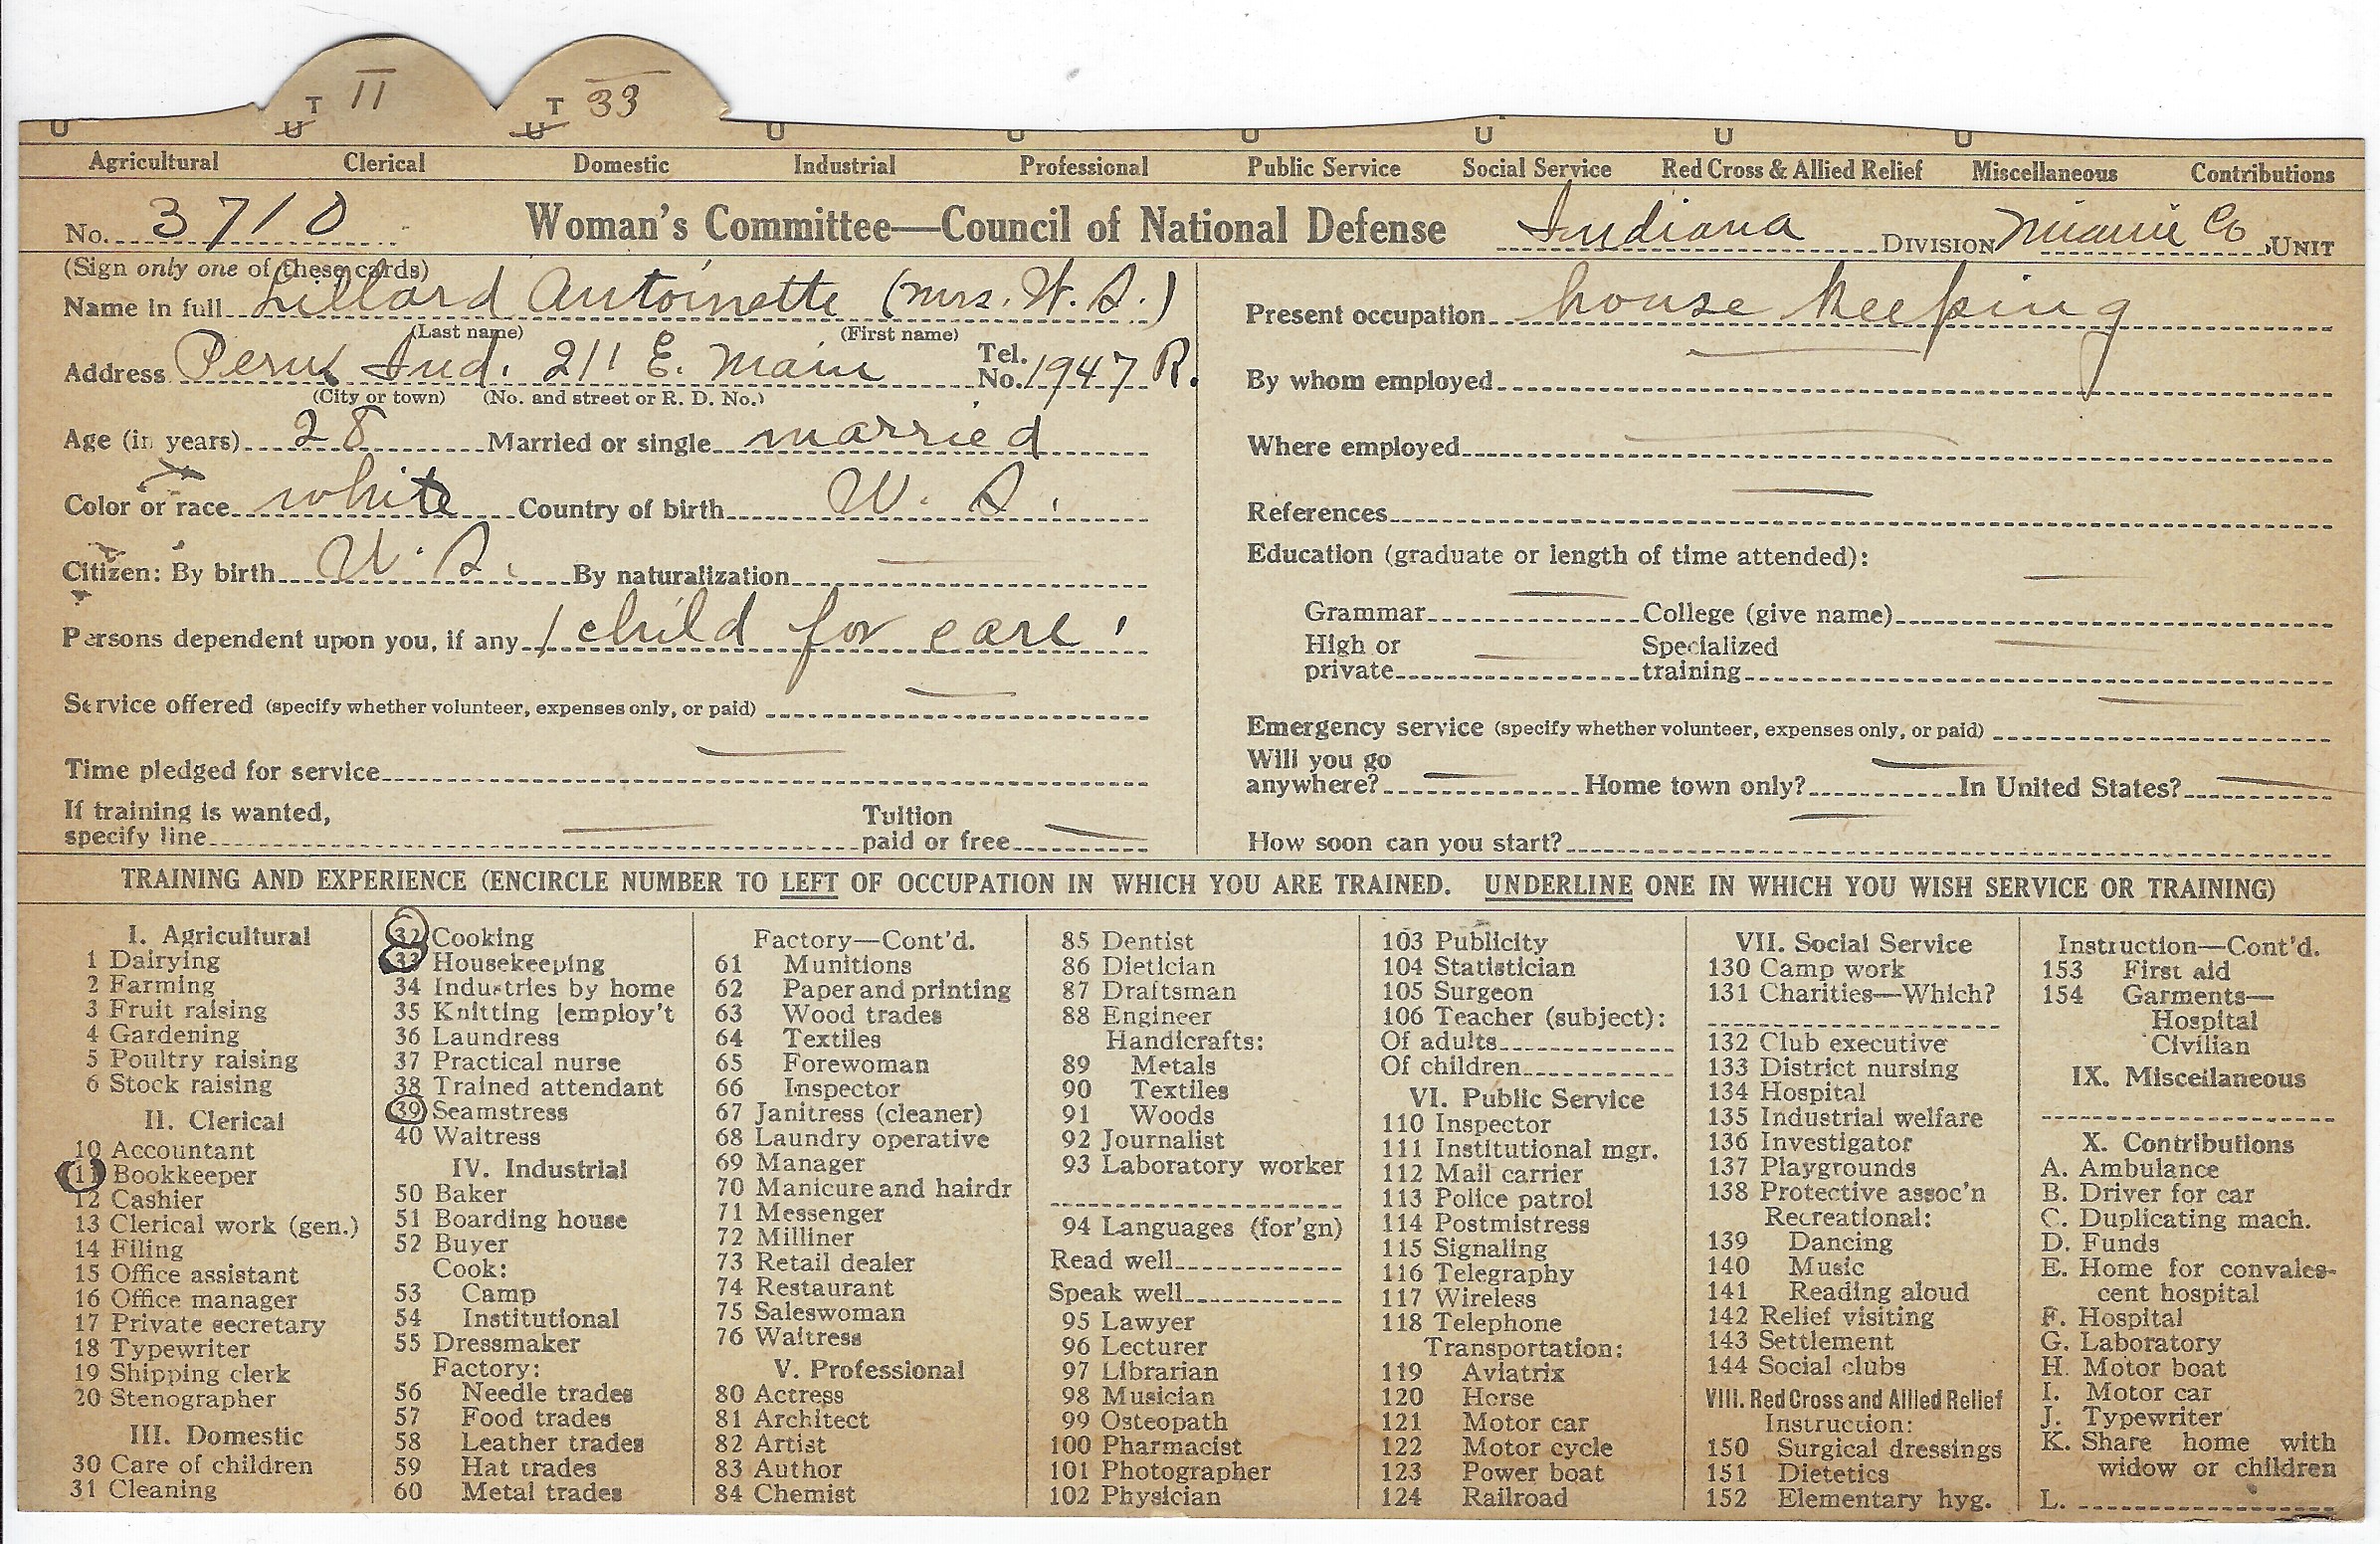 T 11 T 33
U U U U U U U U U
Agricultural Clerical Domestic Industrial Professional Public Service Social Service Red Cross & Allied Relief Miscellaneous Contributions
No. 3710 Woman's Committee—Council of National Defense Indiana DIVISION Miami Co UNIT
(Sign only one of these cards)
Name in full Lillard Antoinette (Mrs. W. S.)
(Last name) (First name)
Address Peru Ind. 211 E. Main Tel. No. 1947 R.
(City or town) (No. and street or R. D. No.)
Age (in years) 28 Married or single married
Color or race white Country of birth U. S.
Citizen: By birth U. S. By naturalization —
Persons dependent upon you, if any 1 child for care
Service offered (specify whether volunteer, expenses only, or paid) —
Time pledged for service —
If training is wanted,
specify line — Tuition paid or free —
Present occupation house keeping
By whom employed —
Where employed —
References —
Education (graduate or length of time attended):
Grammar — College (give name) —
High or private — Specialized training —
Emergency service (specify whether volunteer, expenses only, or paid) —
Will you go
anywhere? — Home town only? — In United States? —
How soon can you start? —
TRAINING AND EXPERIENCE (ENCIRCLE NUMBER TO LEFT OF OCCUPATION IN WHICH YOU ARE TRAINED. UNDERLINE ONE IN WHICH YOU WISH SERVICE OR TRAINING)
I. Agricultural
1 Dairying
2 Farming
3 Fruit raising
4 Gardening
5 Poultry raising
6 Stock raising
II. Clerical
10 Accountant
11 Bookkeeper
12 Cashier
13 Clerical work (gen.)
14 Filing
15 Office assistant
16 Office manager
17 Private secretary
18 Typewriter
19 Shipping clerk
20 Stenographer
III. Domestic
30 Care of children
31 Cleaning
32 Cooking
33 Housekeeping
34 Industries by home
35 Knitting [employ't
36 Laundress
37 Practical nurse
38 Trained attendant
39 Seamstress
40 Waitress
IV. Industrial
50 Baker
51 Boarding house
52 Buyer
Cook:
53 Camp
54 Institutional
55 Dressmaker
Factory:
56 Needle trades
57 Food trades
58 Leather trades
59 Hat trades
60 Metal trades
Factory—Cont'd.
61 Munitions
62 Paper and printing
63 Wood trades
64 Textiles
65 Forewoman
66 Inspector
67 Janitress (cleaner)
68 Laundry operative
69 Manager
70 Manicure and hairdr
71 Messenger
72 Milliner
73 Retail dealer
74 Restaurant
75 Saleswoman
76 Waitress
V. Professional
80 Actress
81 Architect
82 Artist
83 Author
84 Chemist
85 Dentist
86 Dietician
87 Draftsman
88 Engineer
Handicrafts:
89 Metals
90 Textiles
91 Woods
92 Journalist
93 Laboratory worker
94 Languages (for'gn)
Read well
Speak well
95 Lawyer
96 Lecturer
97 Librarian
98 Musician
99 Osteopath
100 Pharmacist
101 Photographer
102 Physician
103 Publicity
104 Statistician
105 Surgeon
106 Teacher (subject):
Of adults
Of children
VI. Public Service
110 Inspector
111 Institutional mgr.
112 Mail carrier
113 Police patrol
114 Postmistress
115 Signaling
116 Telegraphy
117 Wireless
118 Telephone
Transportation:
119 Aviatrix
120 Horse
121 Motor car
122 Motor cycle
123 Power boat
124 Railroad
VII. Social Service
130 Camp work
131 Charities—Which?
132 Club executive
133 District nursing
134 Hospital
135 Industrial welfare
136 Investigator
137 Playgrounds
138 Protective assoc'n
Recreational:
139 Dancing
140 Music
141 Reading aloud
142 Relief visiting
143 Settlement
144 Social clubs
VIII. Red Cross and Allied Relief
Instruction:
150 Surgical dressings
151 Dietetics
152 Elementary hyg.
Instruction—Cont'd.
153 First aid
154 Garments—
Hospital
Civilian
IX. Miscellaneous
X. Contributions
A. Ambulance
B. Driver for car
C. Duplicating mach.
D. Funds
E. Home for convales-
cent hospital
F. Hospital
G. Laboratory
H. Motor boat
I. Motor car
J. Typewriter
K. Share home with
widow or children
L.